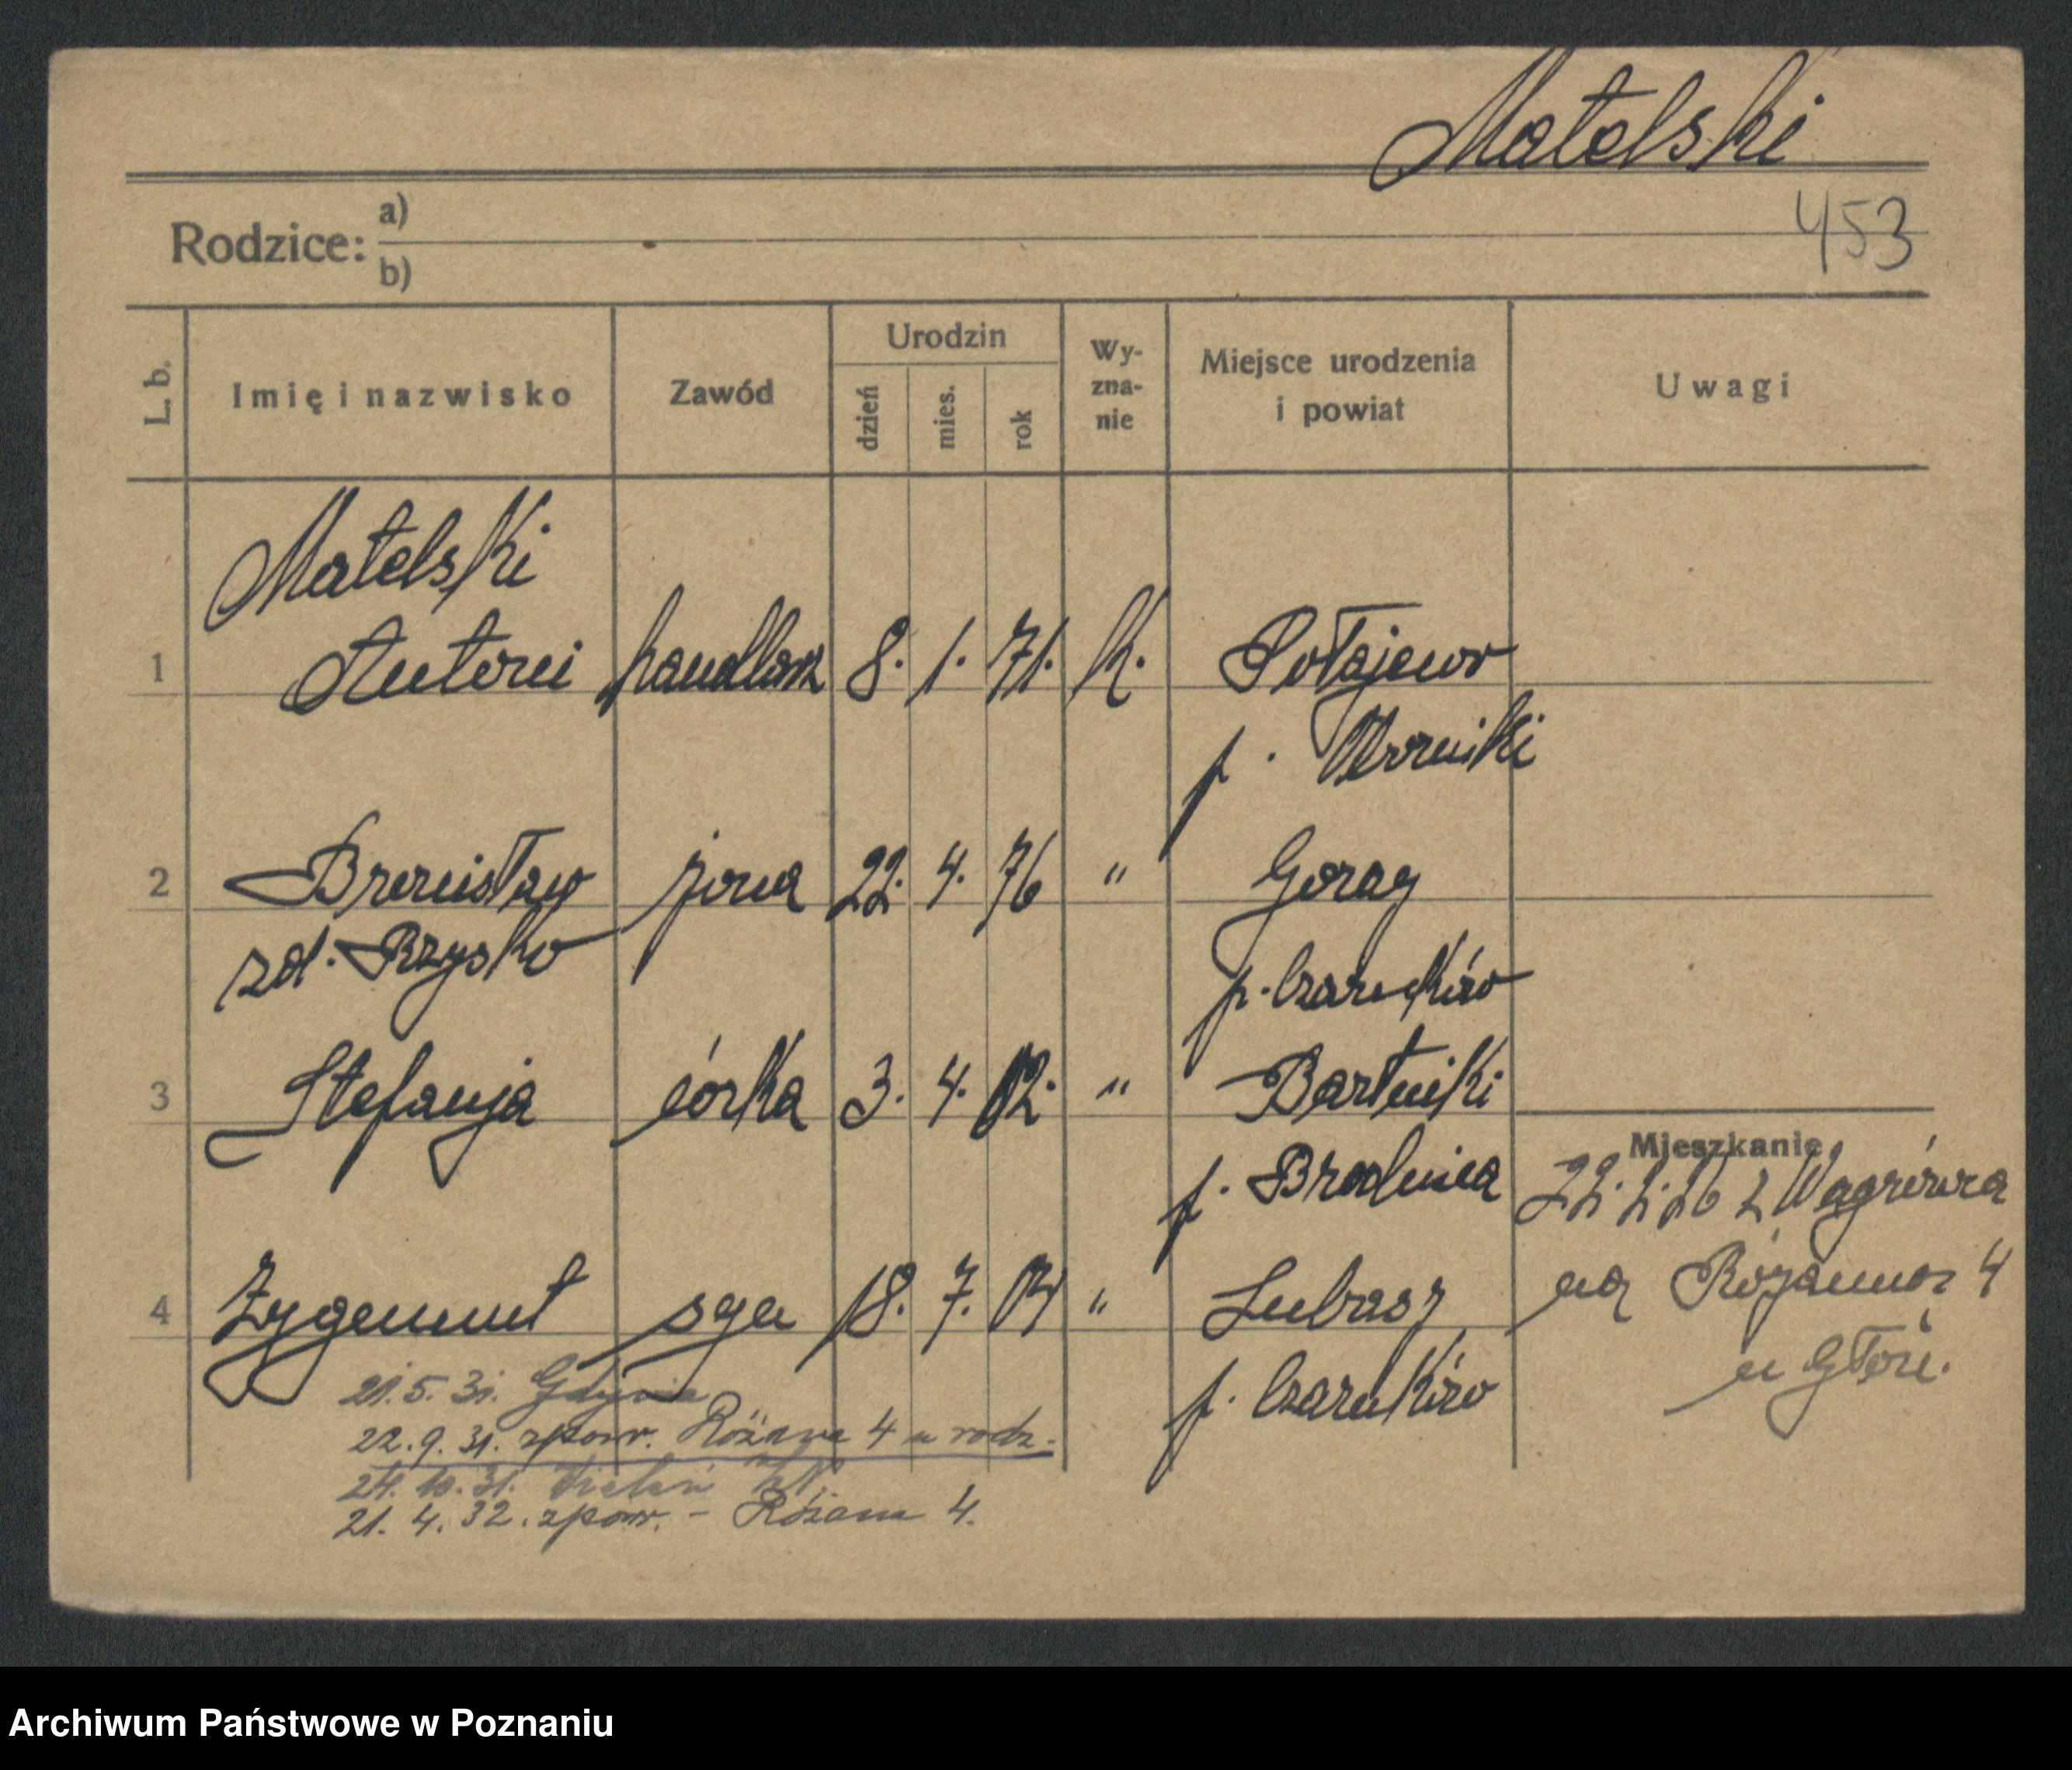 Matelski
453
Rodzice: a)
b)
L. b. Imię i nazwisko Zawód Urodzin dzień mies. rok Wy-zna-nie Miejsce urodzenia i powiat Uwagi
Matelski
1 Antoni handlarz 8. 1. 71. k. Połajewo
p.
2 Bronisław żona 22. 4. 76 " Goray
zd. Brzysko p. Czarnków
3 Stefanja córka 3. 4. 02. " Bartniki
Mieszkanie
p. Brodnica 22. 2. 26 z Wągrówca
4 Zygmunt syn 18. 7. 04 " Lubasz
na Różanna 4
u Głów.
21. 5. 31. Gdynia p. Czarnków
22. 9. 31. zpowr. Różana 4 u rodz.
24. 10. 31. Wieleń
21. 4. 32. zpowr. - Różana 4.
Archiwum Państwowe w Poznaniu